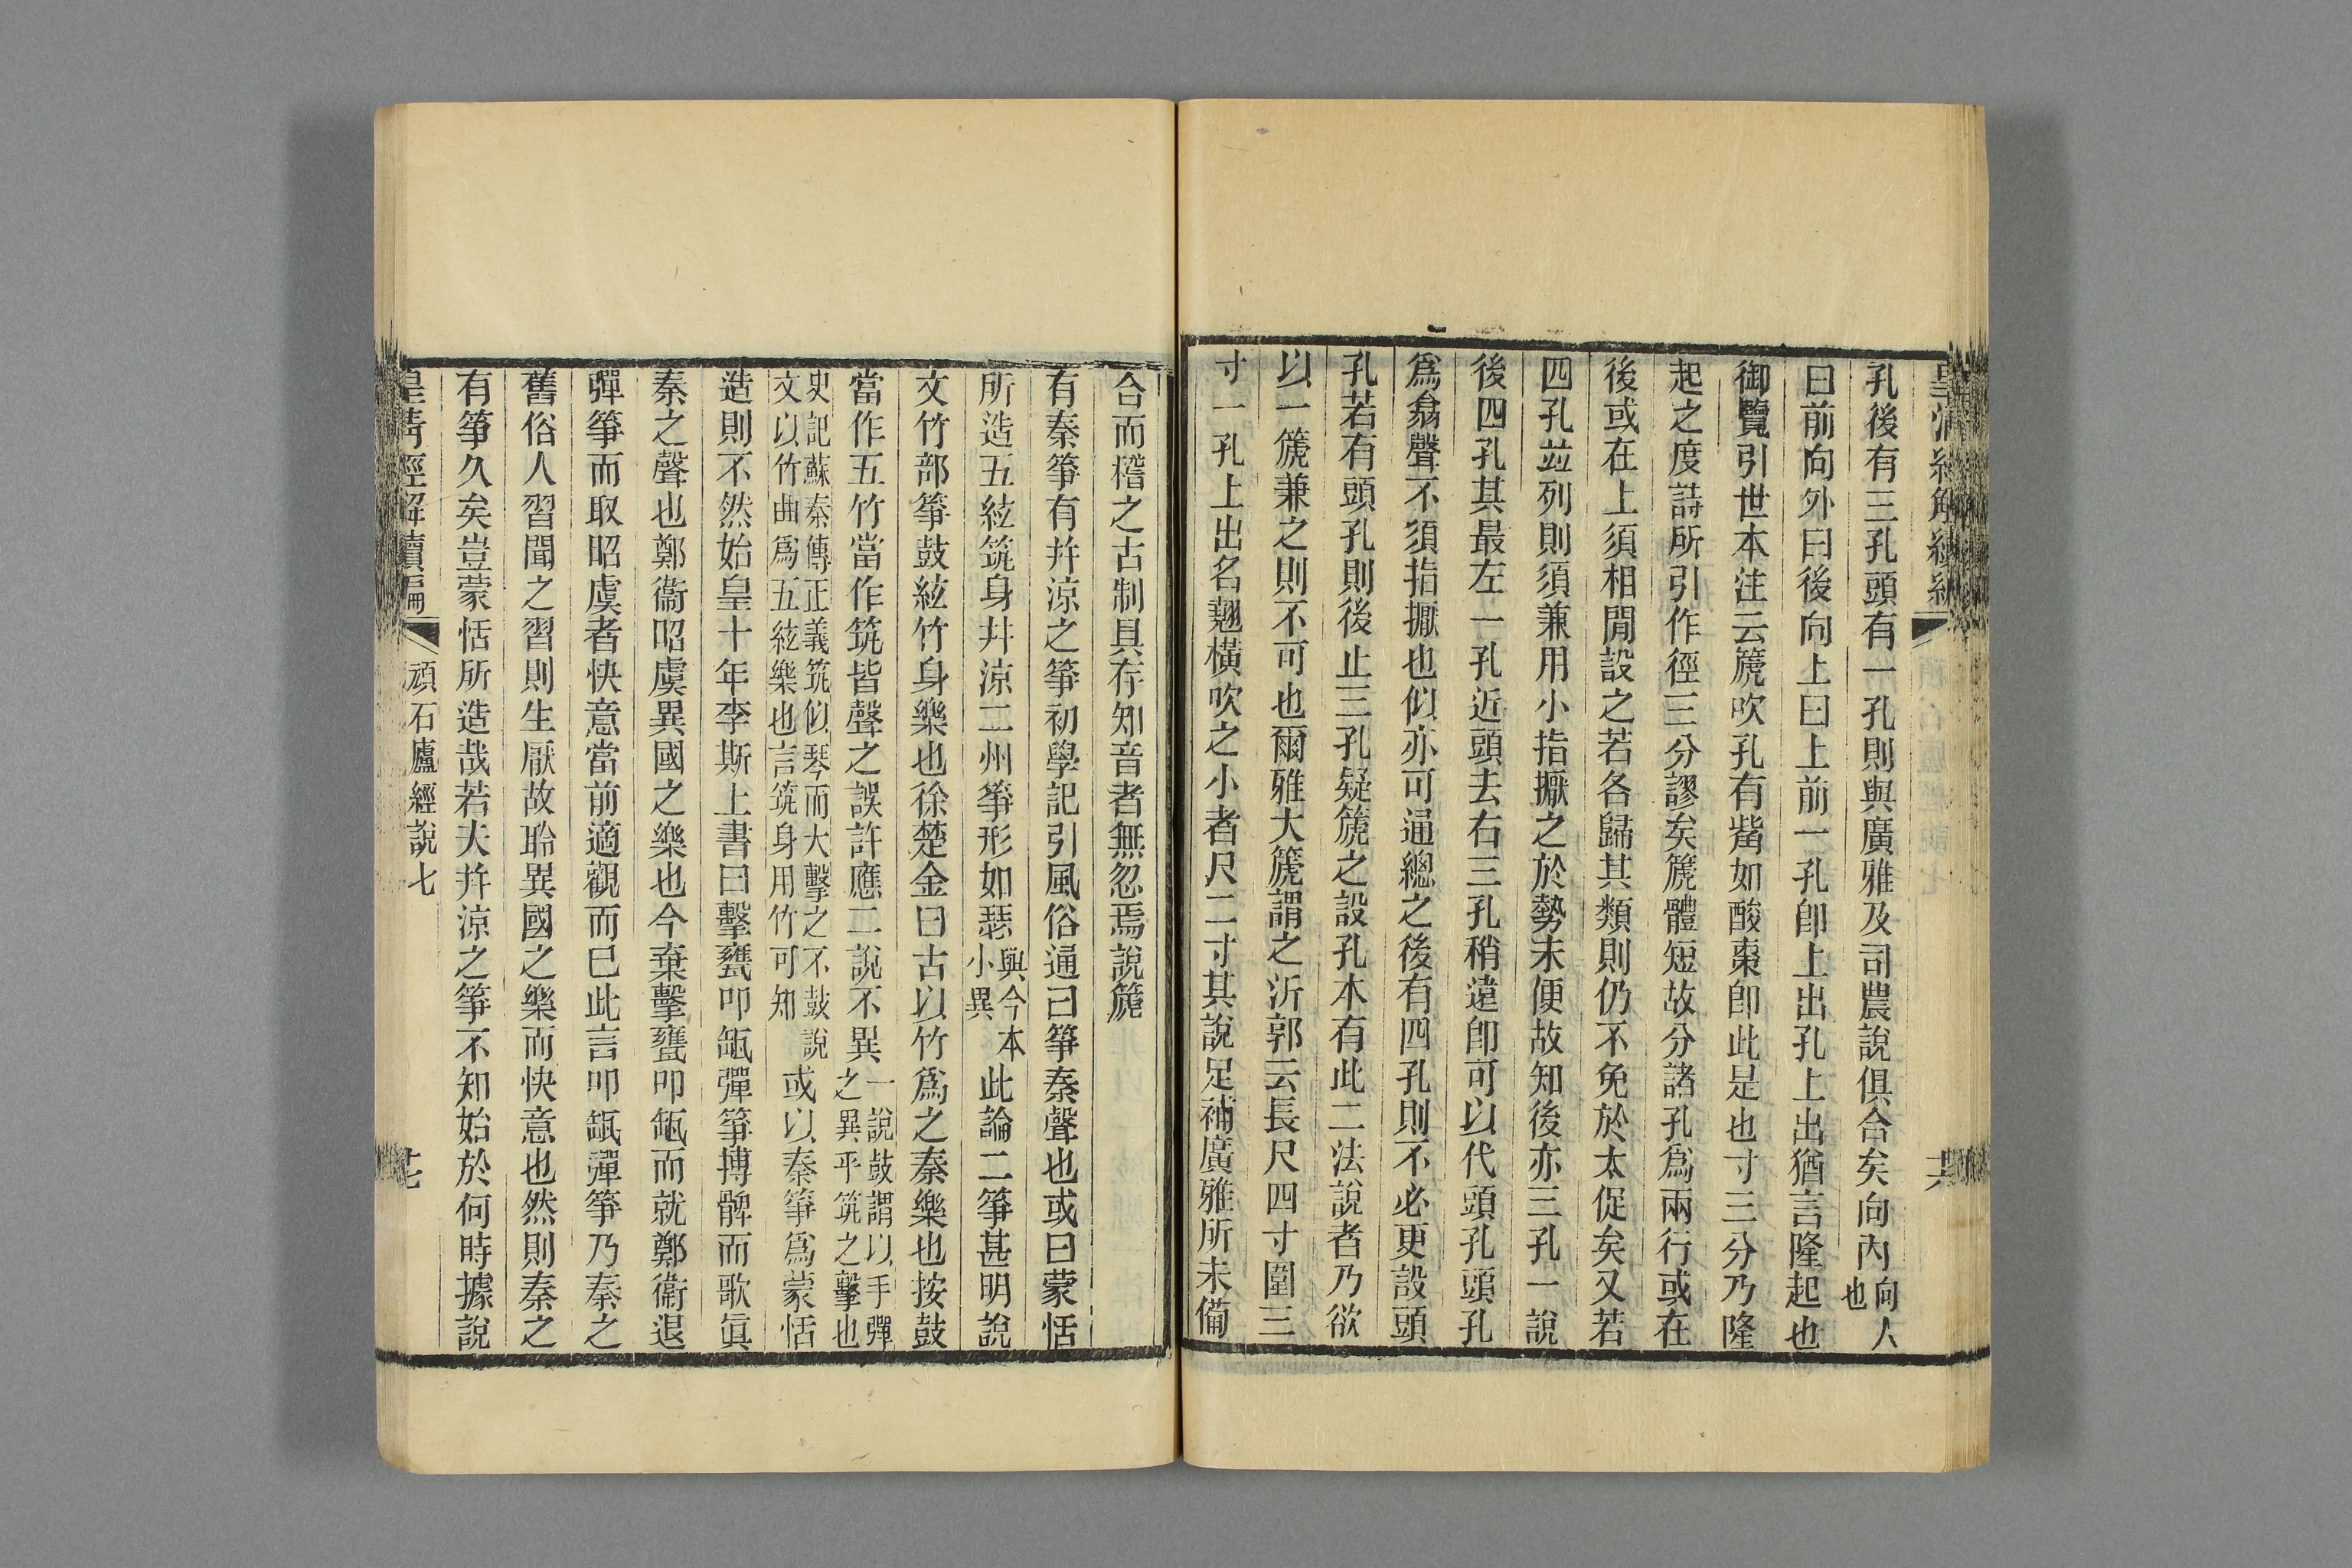 孔後有三孔頭有一孔則與廣雅及司農說俱合矣向內向人也
曰前向外曰後向上曰上前一孔卽上出孔上出猶言隆起也
御覽引世本注云篪吹孔有觜如酸棗卽此是也寸三分乃隆
起之度詩所引作徑三分謬矣篪體短故分諸孔爲兩行或在
後或在上須相閒設之若各歸其類則仍不免於太促矣又若
四孔竝列則須兼用小指擫之於勢未便故知後亦三孔一說
後四孔其最左一孔近頭去右三孔稍遠卽可以代頭孔頭孔
爲翕聲不須指擫也似亦可通總之後有四孔則不必更設頭
孔若有頭孔則後止三孔疑篪之設孔本有此二法說者乃欲
以一篪兼之則不可也爾雅大篪謂之沂郭云長尺四寸圍三
寸一孔上出名翹橫吹之小者尺二寸其說足補廣雅所未備
合而稽之古制具存知音者無忽焉說篪
有秦箏有幷涼之箏初學記引風俗通曰箏秦聲也或曰蒙恬
所造五絃筑身幷涼二州箏形如瑟與今本小異此論二箏甚明說
文竹部箏鼓絃竹身樂也徐楚金曰古以竹爲之秦樂也按鼓
當作五竹當作筑皆聲之誤許應二說不異一說鼓謂以手彈之異乎筑之擊也
史記蘇秦傳正義筑似琴而大擊之不鼓說文以竹曲爲五絃樂也言筑身用竹可知或以秦箏爲蒙恬
造則不然始皇十年李斯上書曰擊甕叩缻彈箏搏髀而歌眞
秦之聲也鄭衞昭虞異國之樂也今棄擊甕叩缻而就鄭衞退
彈箏而取昭虞者快意當前適觀而已此言叩缻彈箏乃秦之
舊俗人習聞之習則生厭故聆異國之樂而快意也然則秦之
有箏久矣豈蒙恬所造哉若夫幷涼之箏不知始於何時據說
皇清經解續編
頑石廬經說七